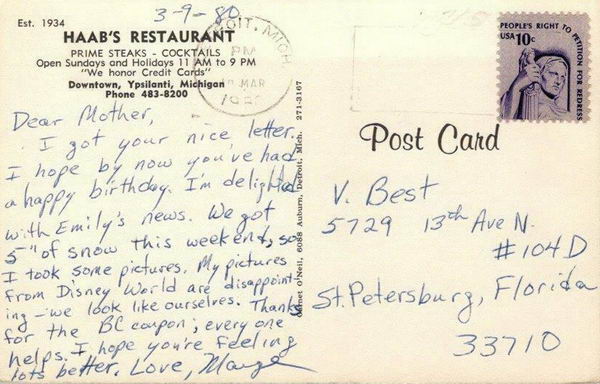 3-9-80
Est. 1934
HAAB'S RESTAURANT
PRIME STEAKS - COCKTAILS
Open Sundays and Holidays 11 AM to 9 PM
"We honor Credit Cards"
Downtown, Ypsilanti, Michigan
Phone 483-8200
Dear Mother,
I got your nice letter.
I hope by now you've had
a happy birthday. I'm delighted
with Emily's news. We got
5" of snow this weekend, so
I took some pictures. My pictures
from Disney World are disappoint-
ing - we look like ourselves. Thanks
for the BC coupon; every one
helps. I hope you're feeling
lots better. Love, Marge
O'Neil, 6088 Auburn, Detroit, Mich. 271-3167
MICH.
PM
MAR
PEOPLE'S RIGHT TO PETITION FOR REDRESS
USA 10c
Post Card
V. Best
5729 13th Ave N.
#104D
St. Petersburg, Florida
33710